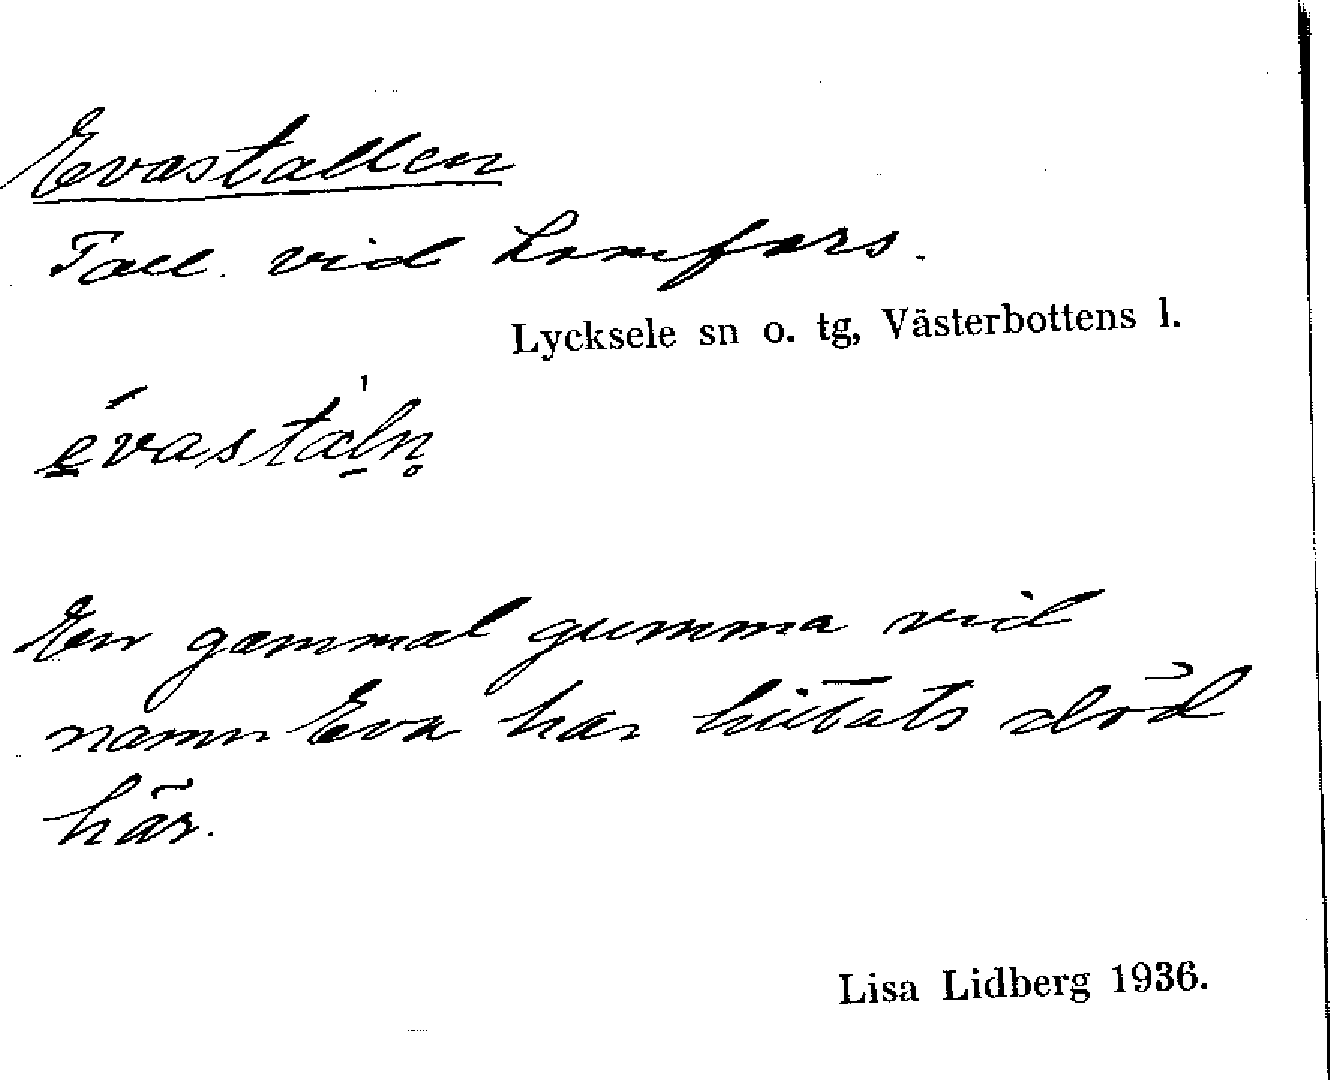 Evastallen
Tall vid Lomfors.
Lycksele sn o. tg, Västerbottens l.
évastàln̥
En gammal gumma vid
namn Eva har hittats död
här.
Lisa Lidberg 1936.